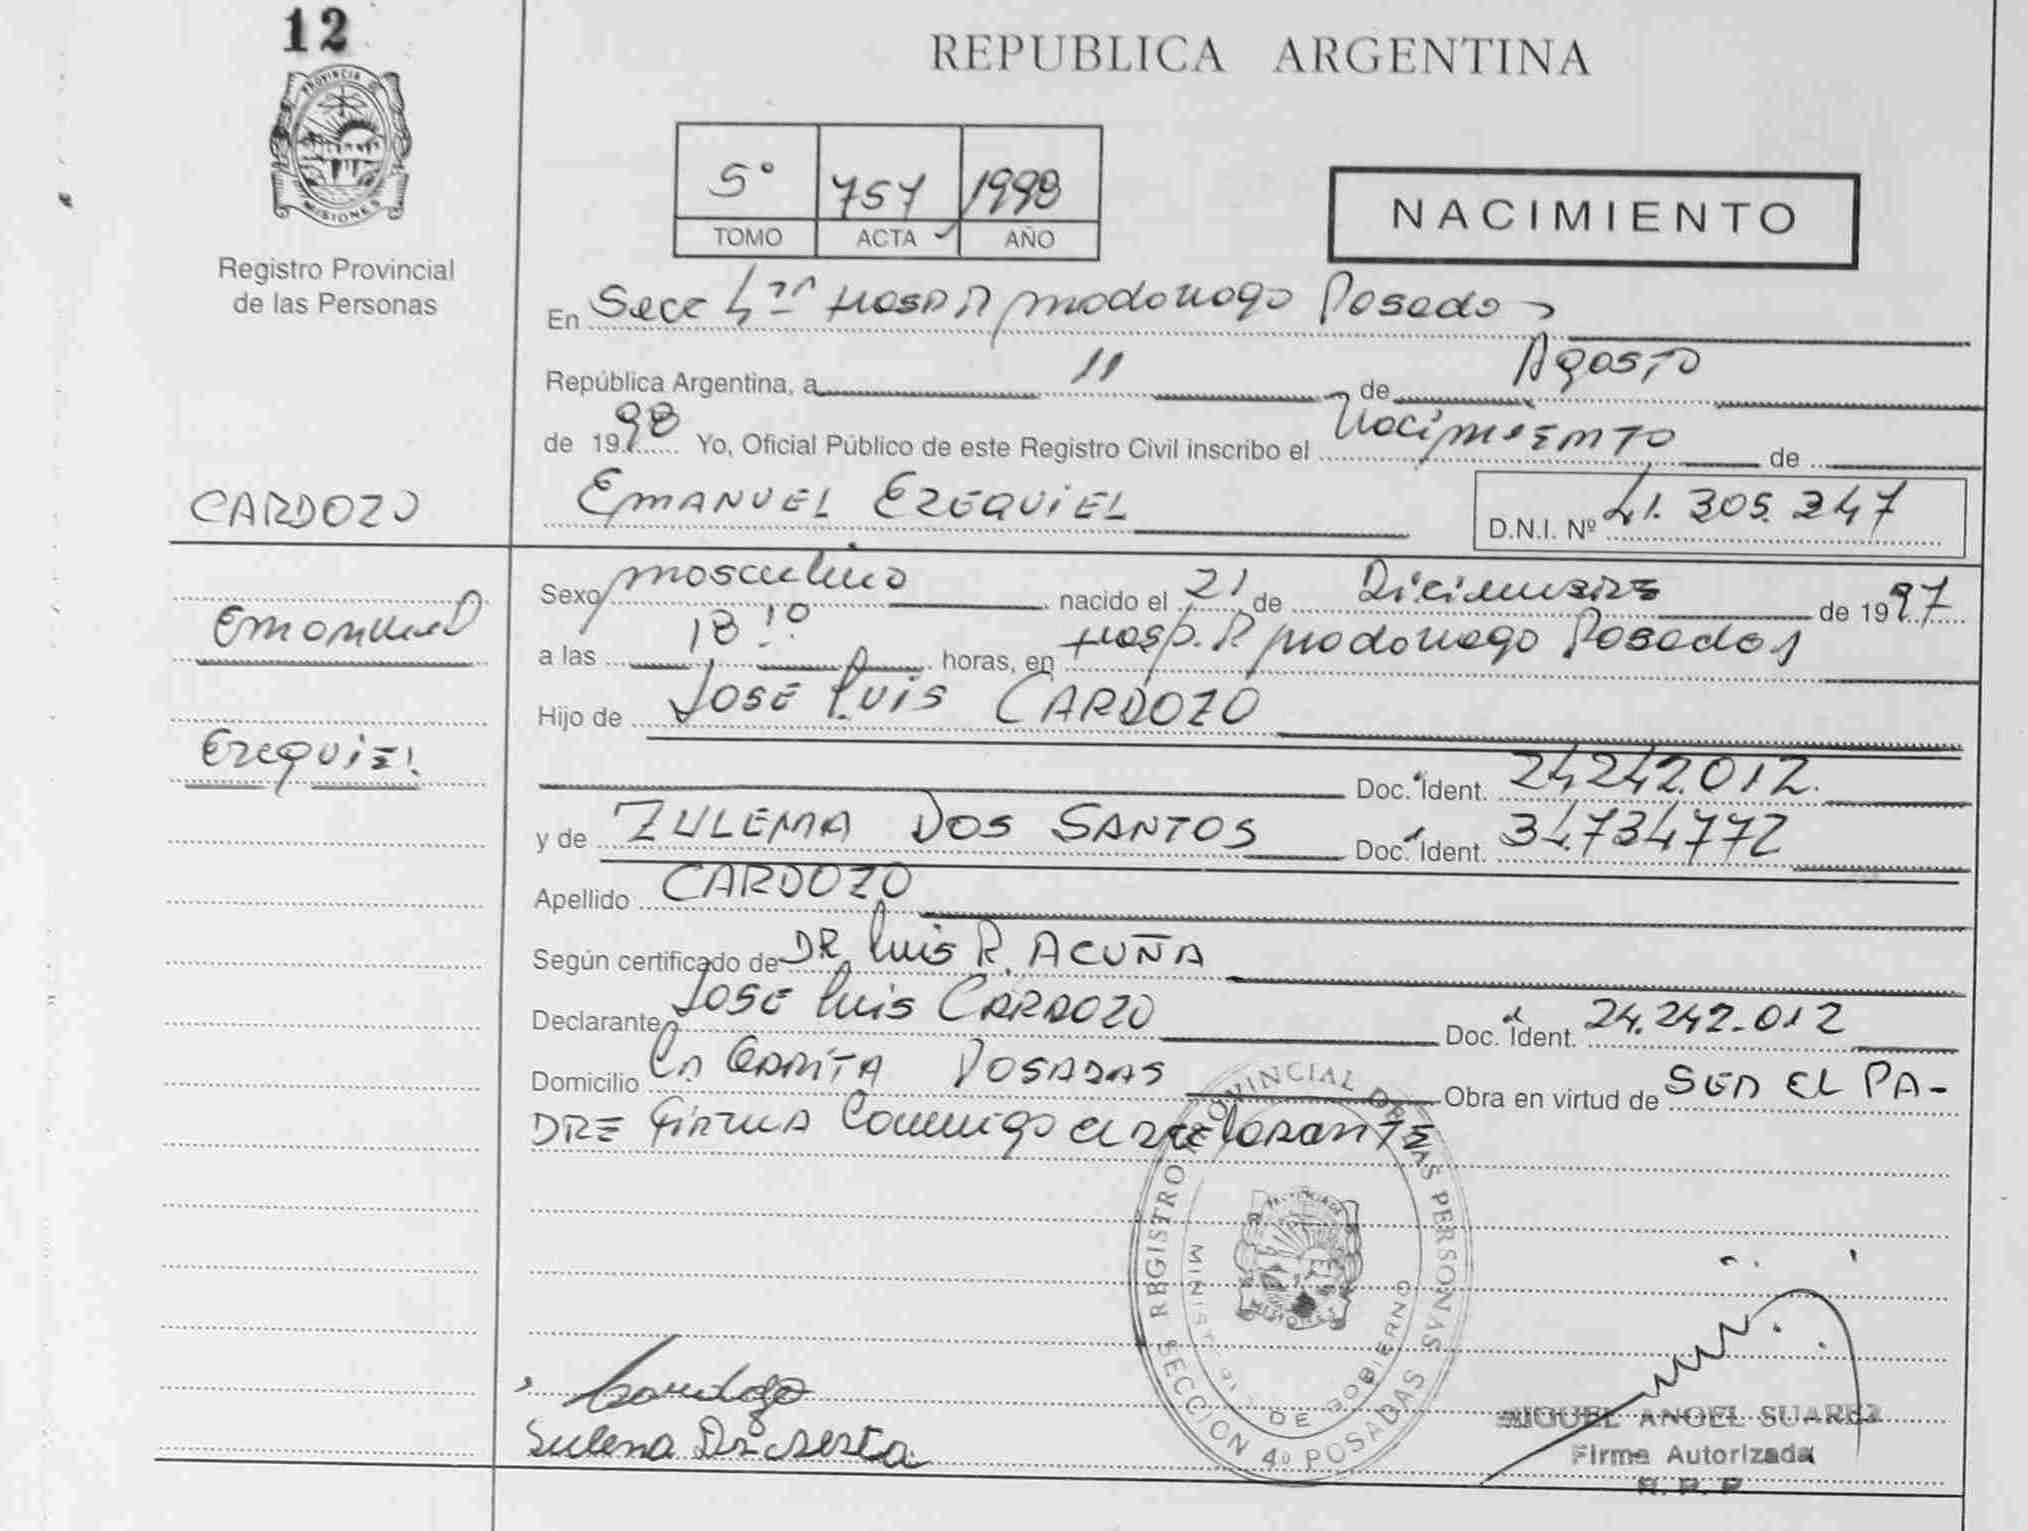 12
PROVINCIA DE
MISIONES
Registro Provincial
de las Personas
REPUBLICA ARGENTINA
5° 757 1998
TOMO ACTA AÑO
NACIMIENTO
En Secc 4ª Hosp R Madariaga Posadas
República Argentina, a 11 de Agosto
de 1998 Yo, Oficial Público de este Registro Civil inscribo el Nacimiento de
CARDOZO
EMANUEL EZEQUIEL D.N.I. Nº 41.305.247
Emanuel
Ezequiel
Sexo masculino nacido el 21 de Diciembre de 1997
a las 18 10 horas, en Hosp. R Madariaga Posadas
Hijo de JOSE LUIS CARDOZO
Doc. Ident. 24242.012.
y de ZULEMA DOS SANTOS Doc. Ident. 34.734772
Apellido CARDOZO
Según certificado de DR Luis R. ACUÑA
Declarante JOSE Luis CARDOZO Doc. Ident. 24.242.012
Domicilio La Garita POSADAS Obra en virtud de SER EL PA-
DRE Firma Conmigo el declarante
REGISTRO PROVINCIAL DE LAS PERSONAS
MINISTERIO DE GOBIERNO
SECCION 4º POSADAS
Cardozo
Sulema
MIGUEL ANGEL SUAREZ
Firma Autorizada
R. P. P